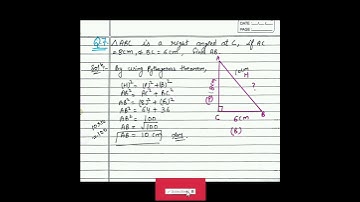 DATE
PAGE
Q7. △ABC is a right angled at C, if AC
= 8cm, & BC = 6cm, find AB.
Solⁿ:- By using Pythagoras theorem,
(H)² = (P)² + (B)²
AB² = AC² + BC²
AB² = (8)² + (6)²
AB² = 64 + 36
AB² = 100
AB = √100
AB = 10 cm Ans.
10×10
=100
A
10cm
H
?
8cm
(P)
C
6cm
B
(B)